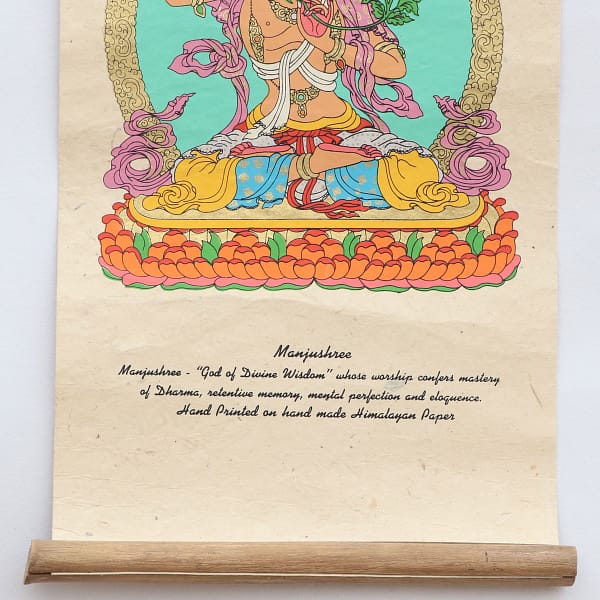 Manjushree
Manjushree - "God of Divine Wisdom" whose worship confers mastery
of Dharma, retentive memory, mental perfection and eloquence.
Hand Printed on hand made Himalayan Paper